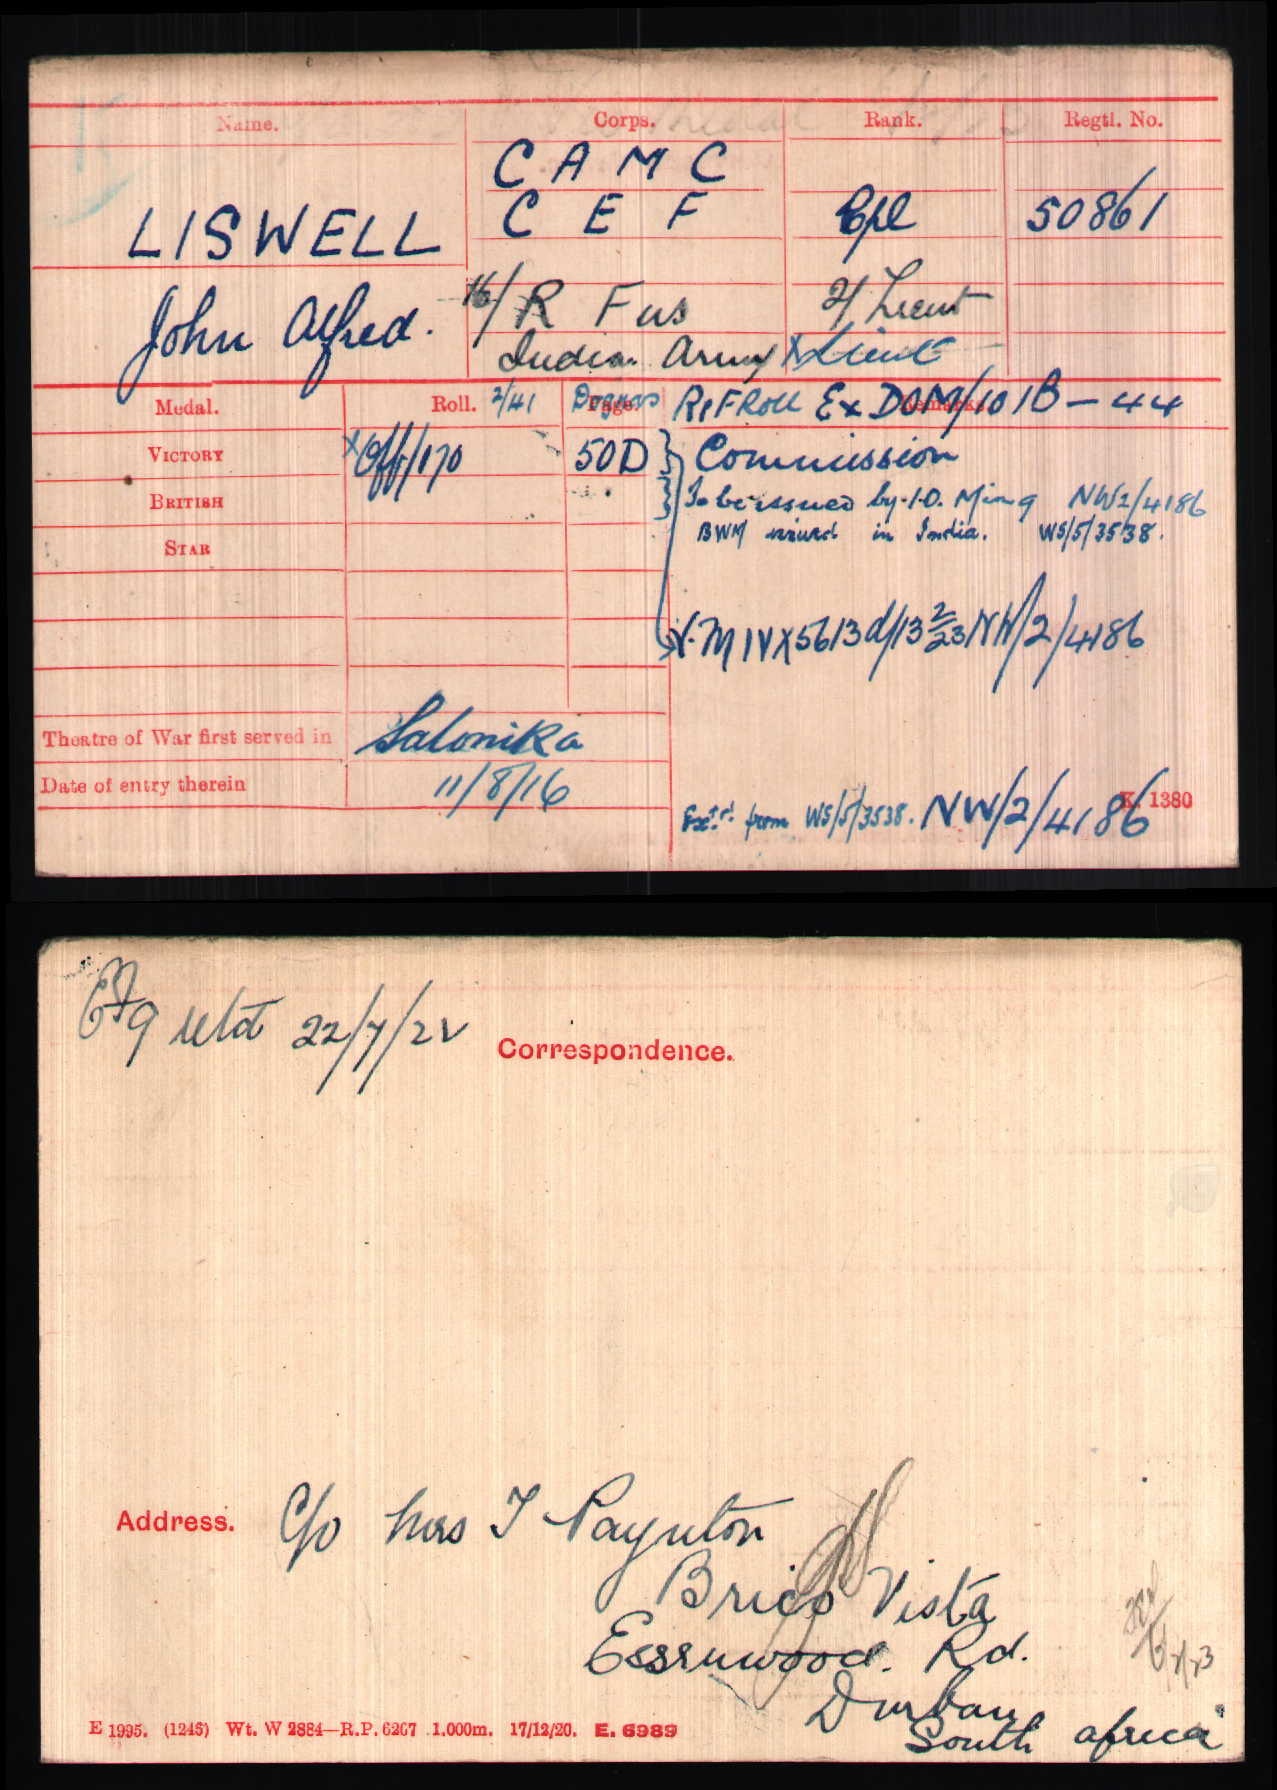 Name. Corps. Rank. Regtl. No.
C A M C
LISWELL C E F Cpl 50861
John Alfred. 16/R Fus 2/Lieut
Indian Army X Lieut
Medal. Roll. 2/41 Dogras R/F Roll Ex DOM/101B - 44
VICTORY X Off/170 50D Commission
BRITISH To be issued by I.O. NW2/4186
BWM issued in India. WS/5/3538.
STAR
V.M IVX5613d/13 2/23 NW/2/4186
Theatre of War first served in Salonika
Date of entry therein 11/8/16
Extd. from WS/5/3538. NW/2/4186 K. 1380
EF9 retd 22/7/22
Correspondence.
Address. C/o Mrs T Paynton
Brico Vista
Essenwood. Rd.
Durban
South Africa
E 1995. (1245) Wt. W 2884—R.P. 6267 1,000m. 17/12/20. E. 6989